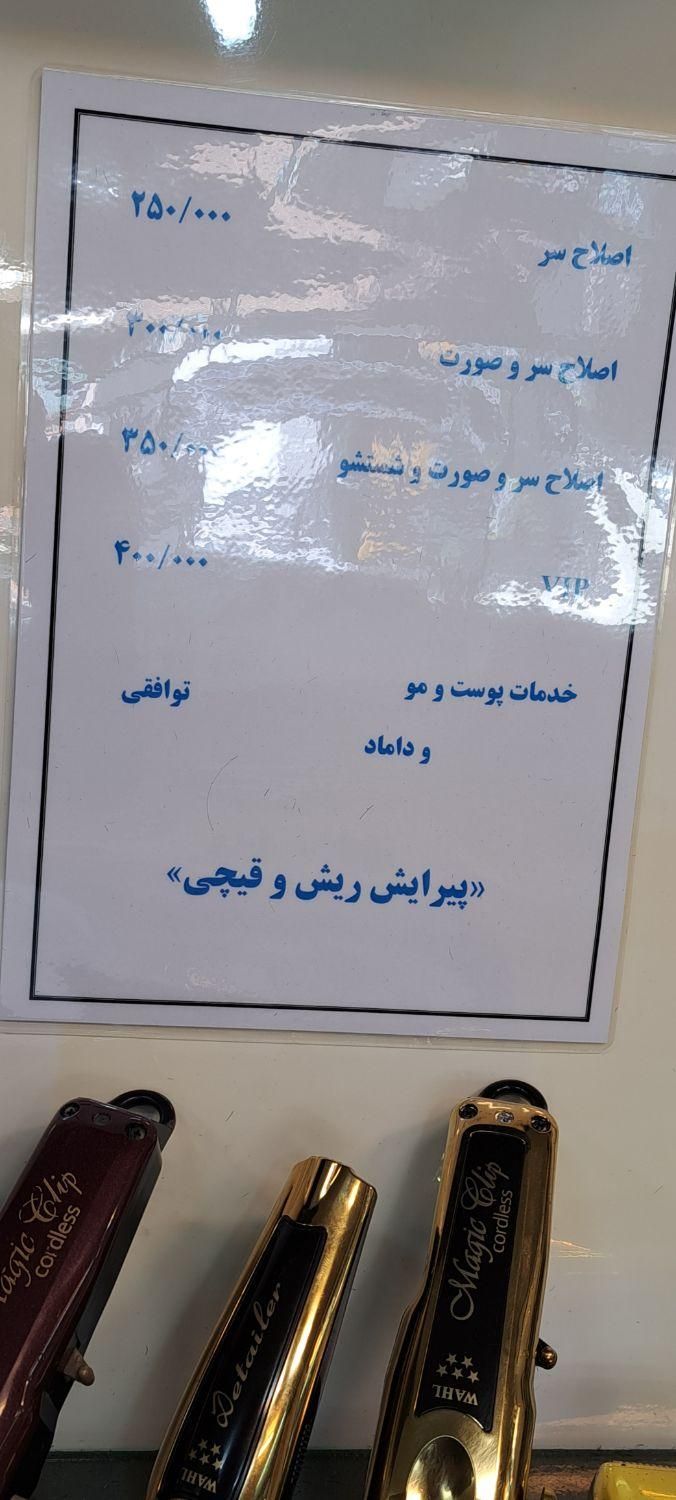 اصلاح سر ۲۵۰/۰۰۰
اصلاح سر و صورت ۳۰۰/۰۰۰
اصلاح سر و صورت و شستشو ۳۵۰/۰۰۰
VIP ۴۰۰/۰۰۰
خدمات پوست و مو توافقی
و داماد
«پیرایش ریش و قیچی»
Magic Clip
cordless
Detailer
WAHL
Magic Clip
cordless
WAHL